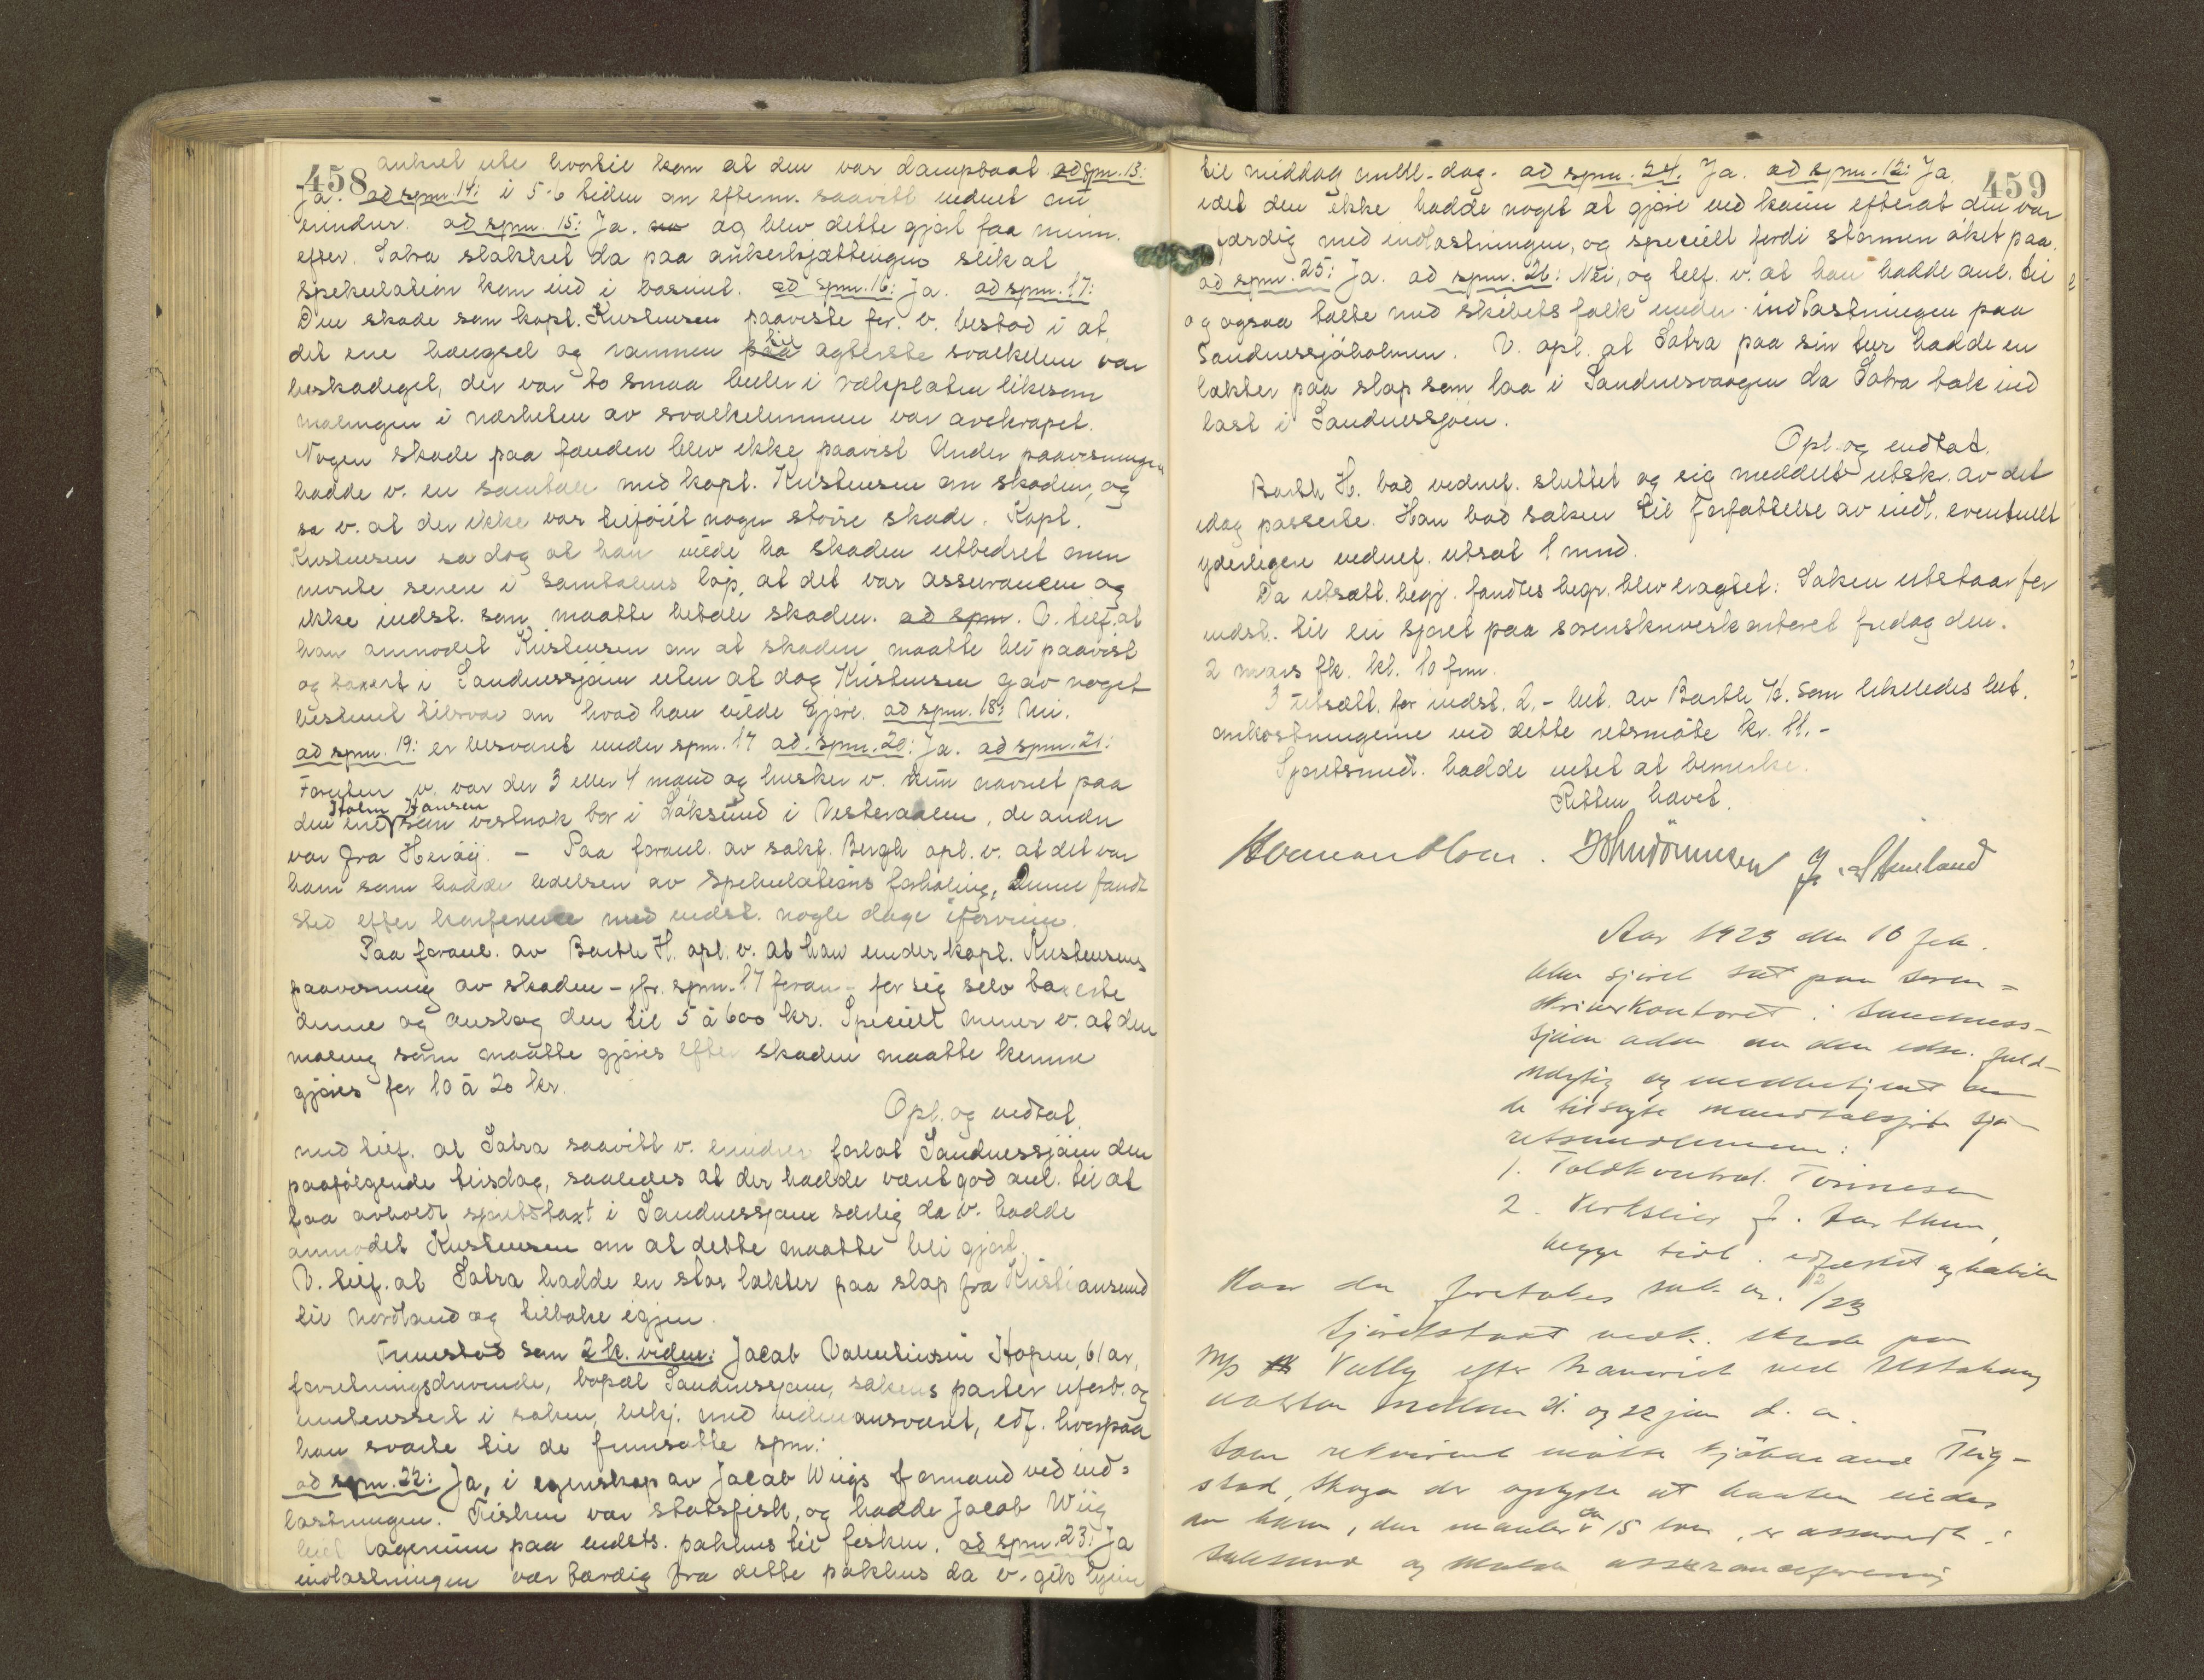 458
ankret ute hvortil kom at den var dampbaat. ad spm. 13:
Ja. ad spm. 14: i 5-6 tiden om efterm. saavitt vidnet nu
erindrer. ad spm. 15: Ja. og blev dette gjort faa minu.
efter. Satra slakket da paa ankerkjættingen slik at
Spekulation kom ind i basinet. ad spm. 16: Ja. ad spm. 17:
Den skade som kapt. Kristensen paaviste for v. bestod i at
det ene hængsel og rammen paa til agterste svalkelem var
beskadiget, der var to smaa buler i rækplaten likesom
malingen i nærheten av svalkelemmen var avskrapet.
Nogen skade paa fenderen blev ikke paavist. Under paavisningen
hadde v. en samtale med kapt. Kristensen om skaden, og
sa v. at der ikke var tilføiet nogen større skade. Kapt.
Kristensen sa dog at han vilde ha skaden utbedret men
nævnte senere i samtalens løp, at det var assurancen og
ikke indst. som maatte betale skaden. ad spm. V. tilf. at
han anmodet Kristensen om at skaden maatte bli paavist
og taxert i Sandnessjøen uten at dog Kristensen gav noget
bestemt tilsvar om hvad han vilde gjøre. ad spm. 18: Nei.
ad spm. 19: er besvaret under spm. 17 ad. spm. 20: Ja. ad spm. 21:
Foruten v. var der 3 eller 4 mand og husker v. kun navnet paa
den ene Holm Hansen som vistnok bor i Laksund i Vesteraalen, de andre
var fra Herøy. - Paa foranl. av sakf. Bergh opl. v. at det var
ham som hadde ledelsen av Spekulations forhaling, denne fandt
sted efter konferance med indst. nogle dage iforveien.
Paa foranl. av Barth H. opl. v. at han under kapt. Kristensens
paavisning av skaden - jfr. spm. 17 foran - for sig selv taxerte
denne og anslog den til 5 à 600 kr. Specielt mener v. at den
maling som maatte gjøres efter skaden maatte kunne
gjøres for 10 à 20 kr.
Opl. og vedtat.
med tilf. at Satra saavitt v. erindrer forlot Sandnessjøen den
paafølgende tirsdag, saaledes at der hadde været god anl. til at
faa avholdt sjøretstaxt i Sandnessjøen særlig da v. hadde
anmodet Kristensen om at dette maatte bli gjort.
V. tilf. at Satra hadde en stor lækter paa slæp fra Kristiansund
til Nordland og tilbake igjen.
Fremstod som 2 k. vidne: Jacob Valentinsen Hopen, 61 ar,
forretningsdrivende, bopæl Sandnessjøen, sakens parter uforb. og
uinteressert i saken, bekj. med vidneansvaret, edf. hvorpaa
han svarte til de fremsatte spm:
ad spm. 22: Ja, i egenskap av Jacob Wiigs formand ved ind-
lastningen. Fisken var statsfisk, og hadde Jacob Wiig
leiet lagerrum paa indsts. pakhus til fisken. ad spm. 23: Ja
indlastningen var færdig fra dette pakhus da v. gik hjem
459
til middag omtl. dag. ad spm. 24. Ja. ad spm. 12: Ja,
idet den ikke hadde noget at gjøre ved kaien efterat den var
færdig med indlastningen, og specielt fordi stormen øket paa.
ad spm. 25: Ja. ad spm. 26: Nei, og tilf. v. at han hadde anl. til
og ogsaa talte med skibets folk under indlastningen paa
Sandnessjøholmen. V. opl. at Satra paa sin tur hadde en
lækter paa slæp som laa i Sandnesvaagen da Satra tok ind
last i Sandnessjøen.
Opl. og vedtat.
Barth H. bad vidnef. sluttet og sig meddelt utskr. av det
idag passerte. Han bad saken til forfattelse av indl. eventuelt
yderligere vidnef. utsat 1 mnd.
Da utsætt. begj. fandtes begr. blev eragtet: Saken utstaar for
indst. til en sjøret paa sorenskriverkontoret fredag den.
2 mars fk. kl. 10 fm.
I utsætt. for indst. 2,- bet. av Barth H. som likeledes bet.
omkostningerne ved dette retsmøte kr. 11.-
Sjøretsmedl. hadde intet at bemerke.
Retten hævet.
Herman Moen. John Tønnesen J. Steinland
Aar 1923 den 10 feb.
blev sjøret sat paa soren-
skriverkontoret i Sandnes-
sjøen adm av den edsv. fuld-
mægtig og medbetjent av
de tilsagte mandtalsførte sjø-
retsmedlemmer:
1. Toldkontrol. Tønnesen
2. Verkseier J.
begge tidl. edfæstet og habile
Hvor da foretokes sak nr. 12/23
Sjøretstaxt vedk. skade paa
M/s Vally efter havarist ved
natten mellem 21. og 22 jan d. a.
Som rekvirent møtte kjøbmand Teig-
stad, der oplyste at baaten eiedes
av ham, den maaler ca 15 ton, er assurert i
og Molde assuranceforening